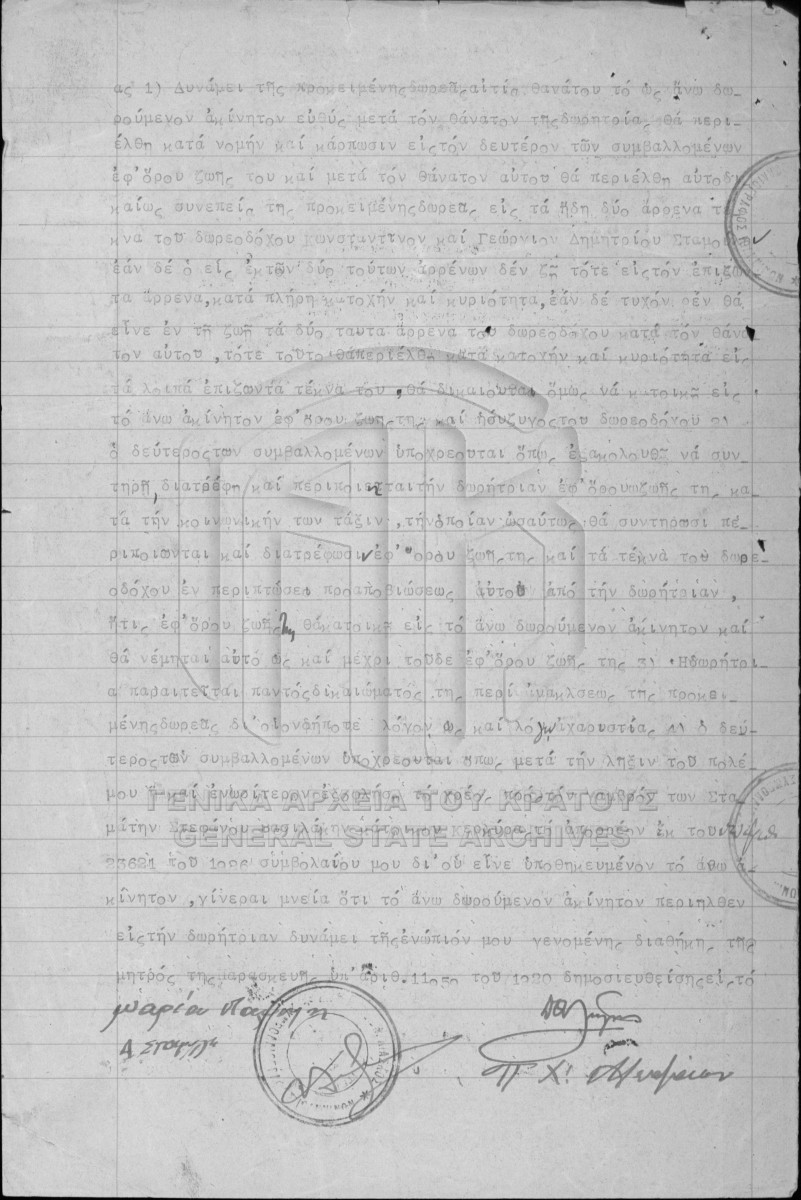 ας 1) Δυνάμει τῆς προκειμένηςδωρεᾶςαἰτίᾳ θανάτου τό ὡς ἄνω δω-
ρούμενον ἀκίνητον εὐθύς μετά τόν θάνατον τηςδωρητρίας θά περι-
έλθη κατά νομήν καί κάρπωσιν εἰςτόν δευτέρον τῶν συμβαλλομένων
ἐφ'ὅρου ζωῆς του καί μετά τόν θάνατον αὐτοῦ θά περιέλθη αὐτοδι
καίως συνεπείᾳ της προκειμένηςδωρεᾶς εἰς τά ἤδη δύο ἄρρενα τέ
κνα τοῦ δωρεοδόχου Κωνσταντῖνον καί Γεώργιον Δημητρίου
ἐάν δέ ὁ εἷς ἐκτῶν δύο τούτων ἀρρένων δέν ζῇ τότε εἰςτόν ἐπιζῶν
τα ἄρρενα,κατά πλήρη κατοχήν καί κυριότητα,ἐάν δέ τυχόν δέν θά
εἶνε ἐν τῇ ζωῇ τά δύο ταῦτα ἄρρενα τοῦ δωρεοδόχου κατά τόν θάνα
τον αὐτοῦ ,τότε τοῦτο θάπεριέλθη κατά κατοχήν καί κυριότητα εἰς
τά λοιπά ἐπιζῶντα τέκνα του ,θά δικαιοῦται ὅμως νά κατοικῇ εἰς
τό ἄνω ἀκίνητον ἐφ'ὅρου ζωῆςτης καί ἡσύζυγοςτου δωρεοδόχου 2)
ὁ δεύτεροςτῶν συμβαλλομένων ὑποχρεοῦται ὅπως ἐξακολουθῇ νά συν
τηρῇ,διατρέφη καί περιποιῆταιτήν δωρήτριαν ἐφ'ὅρουζωῆς της κα-
τά τήν κοινωνικήν των τάξιν ,τήνὁποίαν ὡσαύτως θά συντηρῶσι πε-
ριποιῶνται καί διατρέφωσιν ἐφ'ὅρου ζωῆςτης καί τά τέκνα τοῦ δωρε-
οδόχου ἐν περιπτώσει προαποβιώσεως αὐτοῦ ἀπό τήν δωρήτριαν ,
ἥτις ἐφ'ὅρου ζωῆς της θάκατοικῇ εἰς τό ἄνω δωρούμενον ἀκίνητον καί
θά νέμηται αὐτό ὡς καί μέχρι τοῦδε ἐφ'ὅρου ζωῆς της 3) Ἡδωρήτρι-
α παραιτεῖται παντόςδικαιώματός της περί ἀνακλήσεως τῆς προκει-
μένηςδωρεᾶς δι'οἱονδήποτε λόγον ὡς καί λόγῳ ἀχαριστίας 4) ὁ δεύ-
τεροςτῶν συμβαλλομένων ὑποχρεοῦται ὅπως μετά τήν λῆξιν τοῦ πολέ-
μου ἤ καί ἐνωρίτερον ἐξοφλήσῃ τό χρέος πρός τόν γαμβρόν των Στα-
μάτην Στεφάνου Βασιλάκην κάτοικον Κερκύρας τό ἀπορρέον ἐκ τοῦ
23621 τοῦ 1926 συμβολαίου μου δι'οὗ εἶνε ὑποθηκευμένον τό ἄνω ἀ-
κίνητον ,γίνεται μνεία ὅτι τό ἄνω δωρούμενον ἀκίνητον περιῆλθεν
εἰςτήν δωρήτριαν δυνάμει τῆςἐνώπιόν μου γενομένης διαθήκης τῆς
μητρός της Παρασκευῆς ὑπ'ἀριθ. τοῦ 1920 δημοσιευθείσηςεἰςτό
Μαρία
ΓΕΝΙΚΑ ΑΡΧΕΙΑ ΤΟΥ ΚΡΑΤΟΥΣ
GENERAL STATE ARCHIVES